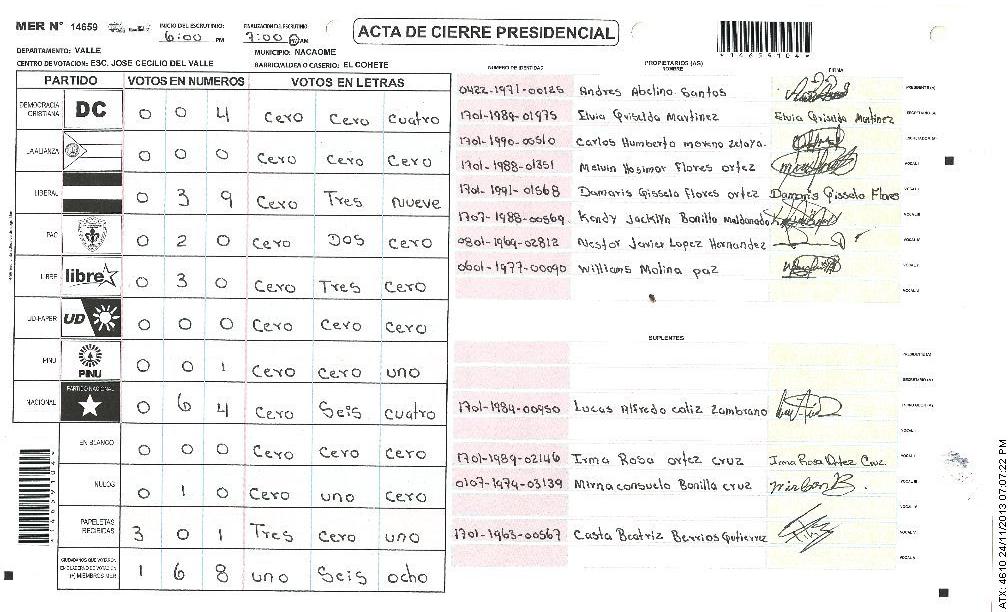 MER Nº 14659
INICIO DEL ESCRUTINIO
6:00 PM
FINALIZACION DEL ESCRUTINIO
7:00 AM
ACTA DE CIERRE PRESIDENCIAL
DEPARTAMENTO: VALLE
MUNICIPIO: NACAOME
CENTRO DE VOTACION: ESC. JOSE CECILIO DEL VALLE
BARRIO/ALDEA O CASERIO: EL COHETE
PARTIDO VOTOS EN NUMEROS VOTOS EN LETRAS
DEMOCRACIA CRISTIANA DC 0 0 4 Cero Cero cuatro
LA ALIANZA 0 0 0 Cero Cero Cero
LIBERAL 0 3 9 Cero Tres nueve
PAC 0 2 0 Cero Dos Cero
LIBRE libre 0 3 0 Cero Tres Cero
UD-FAPER UD 0 0 0 Cero Cero Cero
PINU PINU 0 0 1 Cero Cero uno
NACIONAL PARTIDO NACIONAL 0 6 4 Cero Seis cuatro
EN BLANCO 0 0 0 Cero Cero Cero
NULOS 0 1 0 Cero uno Cero
PAPELETAS RECIBIDAS 3 0 1 Tres Cero uno
CIUDADANOS QUE VOTARON EN CUADERNO DE VOTACION (+) MIEMBROS MER 1 6 8 uno Seis ocho
NUMERO DE IDENTIDAD PROPIETARIOS (AS) NOMBRE FIRMA
0422-1971-00125 Andres Abelino Santos PRESIDENTE (A)
1701-1989-01975 Elvia Griselda Martinez Elvia Griselda Martinez SECRETARIO (A)
1701-1990-00510 Carlos Humberto moreno zelaya. ESCRUTADOR (A)
1701-1988-01351 Melvin Hosimar Flores ortez VOCAL I
1701-1991-01568 Damaris Gissela Flores ortez Damaris Gissela Flores VOCAL II
1707-1988-00569. Kendy Jacklyn Bonilla maldonado VOCAL III
0801-1969-02812 Nestor Javier Lopez Hernandez VOCAL IV
0601-1977-00090 Williams Molina paz VOCAL V
VOCAL VI
SUPLENTES
PRESIDENTE (A)
SECRETARIO (A)
1701-1984-00950 Lucas Alfredo caliz Zambrano ESCRUTADOR (A)
VOCAL I
1701-1989-02146 Irma Rosa ortez cruz Irma Rosa Ortez Cruz. VOCAL II
0107-1974-03139 Mirna consuelo Bonilla cruz VOCAL III
VOCAL IV
1701-1963-00567 Casta Beatriz Berrios Gutierrez VOCAL V
VOCAL VI
ATX: 4610 24/11/2013 07:07:22 PM